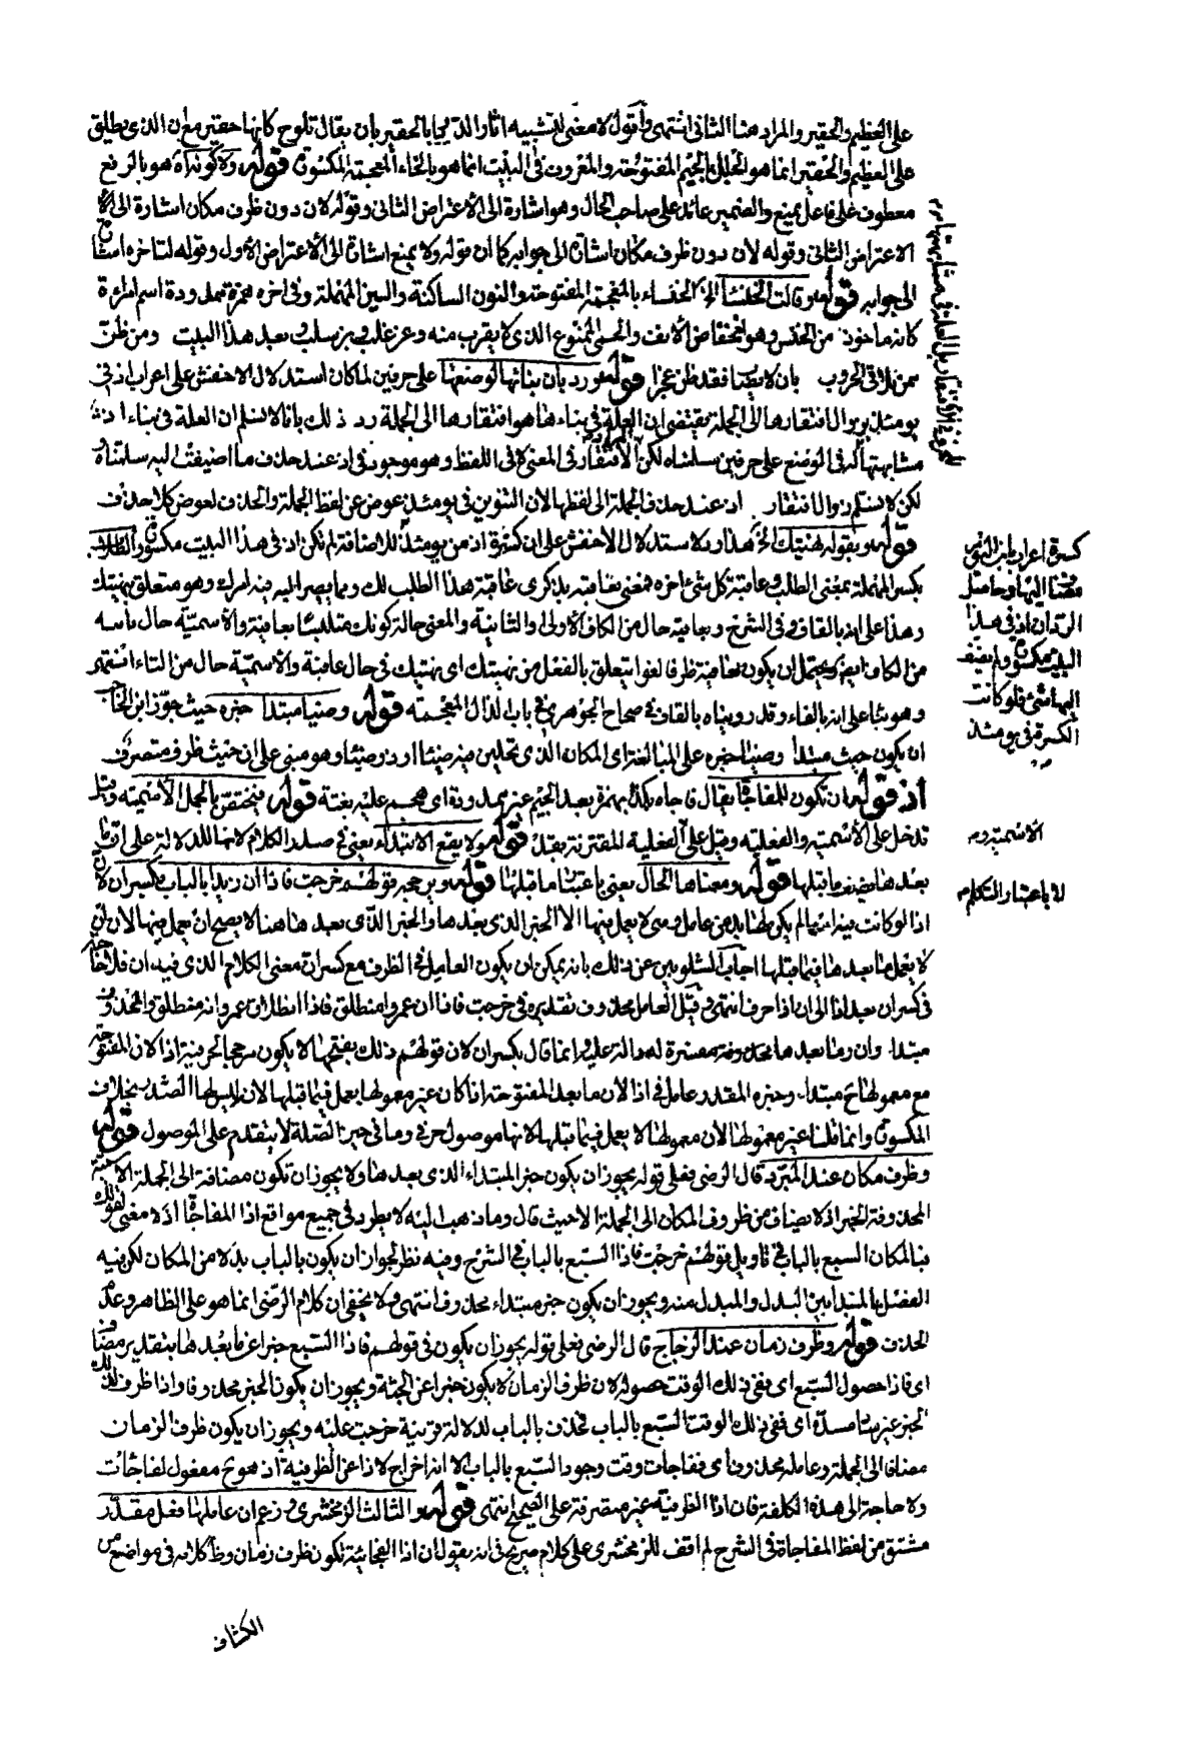 على العظيم والحقير والمراد هنا الثانى انتهى واقول لا معنى لتشبيه اثار الديار بالحقير بان يقال تلوح كانها حقير مع ان الذى يطلق
على العظيم والحقير انما هو الجلل بالجيم المفتوحة والمعروف فى البيت انما هو بالخاء المعجمة المكسورة قوله ولا كونه اه هو بالرفع
معطوف على فاعل يمنع والضمير عائد على صاحب الحال وهو اشارة الى الاعتراض الثانى وقوله لان دون ظرف مكان اشارة الى الا
الاعتراض الثانى وقوله لان دون ظرف مكان اشارة الى جوابه كما ان قوله ولا يمنع اشارة الى الاعتراض الاول وقوله لتاخره اشارة
الى جوابه قوله وقالت الخنساء الخ الخنساء بالمعجمة المفتوحة والنون الساكنة والسين المهملة وفى اخره همزة ممدودة اسم امراة
كانه ماخوذ من الخنس وهو انخفاض الانف والحمى الممنوع الذى لا يقرب منه وعز غلب وبز سلب وبعد هذا البيت ومن ظن
ممن يلاقى الحروب بان لا يصاب فقد ظن عجزا قوله ورد بان بنائها لوضعها على حرفين لما كان استدلال الاخفش على اعراب اذ فى
يومئذ بزوال افتقارها الى الجملة يقتضى ان العلة فى بناءها هو افتقارها الى الجملة رد ذلك بانا لا نسلم ان العلة فى بناء اذ
مشابهتها له فى الوضع على حرفين سلمناه لكن الافتقار فى المعنى لا فى اللفظ وهو موجود فى اذ عند حذف ما اضيفت اليه سلمناه
لكن لا نسلم زوال افتقار اذ عند حذف الجملة الى لفظها لان التنوين فى يومئذ عوض عن لفظ الجملة والحذف لعوض كلا حذف
قوله وبقوله نهيتك الخ هذا رد لاستدلال الاخفش على ان كسرة اذ من يومئذ للاضافة لم تكن اذ فى هذا البيت مكسورة الطلاب
بكسر المهملة بمعنى الطلب وعاقبة كل شئ اخره فمعنى بعاقبة بذكرى عاقبة هذا الطلب لك وما يصير اليه فيه امرك وهو متعلق بنهيتك
وهذا على انه بالقاف وفى الشرح وبعافية حال من الكاف الاولى او الثانية والمعنى حالة كونك متلبسا بعافية والاسمية حال ثانية
من الكاف ايضا ويحتمل ان يكون بعافية ظرفا لغوا يتعلق بالفعل من نهيتك اى نهيتك فى حال عافية والاسمية حال من التاء انتهى
وهو بناء على انه بالفاء وقد رويناه بالقاف فى صحاح الجوهرى فى باب الذال المعجمة قوله وضنيا مبتدا خبره حيث جوز ابن الحاجب
ان يكون حيث مبتدا وضنيا خبره على المبالغة اى المكان الذى تحلين فيه ضيئا او ذو ضيئا وهو مبنى على ان حيث ظرف متصرف
اذ قوله ان تكون للمفاجاة يقال فاجاه بكذا بهمزة بعد الجيم غير ممدودة اى هجم عليه بغتة قوله فيختص بالجمل الاسمية وقيل
تدخل على الاسمية والفعلية وقيل على الفعلية المقترنة بقد قوله ولا يقع الابتداء يعنى فى صدر الكلام لانها للدلالة على اقتران
بعدها بمضمون ما قبلها قوله ومعناها الحال يعنى باعتبار ما قبلها قوله ويرجحه قولهم خرجت فاذا ان زيدا بالباب بكسر ان لان
اذا لو كانت فيه اسما لم يكن لها بد من عامل وشئ لا يعمل فيها الا الخبر الذى بعدها والخبر الذى بعد هاهنا لا يصح ان يعمل فيها لان ان
لا يعمل ما بعدها فيما قبلها اجاب الشلوبين عن ذلك بانه يمكن ان يكون العامل فى الظرف مع كسر ان معنى الكلام الذى فيه ان فلا حاجة
فى كسر ان بعد اذا الى ان اذا حرف انتهى وقيل العامل محذوف تقديره فى خرجت فاذا ان عمروا منطلق فاذا انطلاق عمرو انه منطلق والمحذوف
مبتدا وان وما بعدها محذوفة مفسرة له دالة عليه وانما قال بكسر ان لان قولهم ذلك بفتحها لا يكون مرجحا لحرفية اذا لان المفتوحة
مع معمولها فى مبتدا وخبره المقدر عامل فى اذا لان ما بعد المفتوحة اذا كان غير معمولها يعمل فيما قبلها لان ليس لها الصدر بخلاف
المكسورة وانما قلنا غير معمولها لان معمولها لا يعمل فيما قبلها لانها موصول حرفى وما فى حيز الصلة لا يتقدم على الموصول قوله
وظرف مكان عند المبرد قال الرضى فعلى قوله يجوز ان يكون خبر المبتداء الذى بعدها ولا يجوز ان تكون مضافة الى الجملة الاسمية
المحذوفة الخبر اذ لا يضاف من ظروف المكان الى الجملة الا حيث قال وما ذهب اليه لا يطرد فى جميع مواقع اذا المفاجاة اذ لا معنى لقولك
فبالمكان السبع بالباب فى تاويل قولهم خرجت فاذا السبع بالباب فى الشرح وفيه نظر لجواز ان يكون بالباب بدلا من المكان لكن فيه
الفصل بالمبتدا بين البدل والمبدل منه ويجوز ان يكون خبر مبتداء محذوف انتهى ولا يخفى ان كلام الرضى انما هو على الظاهر وعدم
الحذف قوله وظرف زمان عند الزجاج قال الرضى فعلى قوله يجوز ان يكون فى قولهم فاذا السبع خبرا عما بعدها بتقدير مضاف
اى فاذا حصول السبع اى ففى ذلك الوقت حصوله لان ظرف الزمان لا يكون خبرا عن الجثة ويجوز ان يكون الخبر محذوفا واذا ظرف لذلك
الخبر غير ساد مسده اى ففى ذلك الوقت السبع بالباب فحذف بالباب لدلالة قرينة خرجت عليه ويجوز ان يكون ظرف الزمان
مضافا الى الجملة وعامله محذوف اى ففاجات وقت وجود السبع بالباب الا انه اخراج لاذا عن الظرفية اذ هو ح مفعول لفاجات
ولا حاجة الى هذه الكلفة فان اذا الظرفية غير متصرفة على الصحيح انتهى قوله والثالث الزمخشرى وزعم ان عاملها فعل مقدر
مشتق من لفظ المفاجاة فى الشرح لم اقف للزمخشرى على كلام صريح فى انه يقول ان اذا الفجائية تكون ظرف زمان وظ كلامه فى مواضع من
الكشاف
كسرة اعراب
مضافا اليها وحاصل
الرد ان اذ فى هذا
البيت مكسورة ولم يضف
اليها شئ فلو كانت
الكسرة فى يومئذ
الاسمية
لا باعتبار التكلم